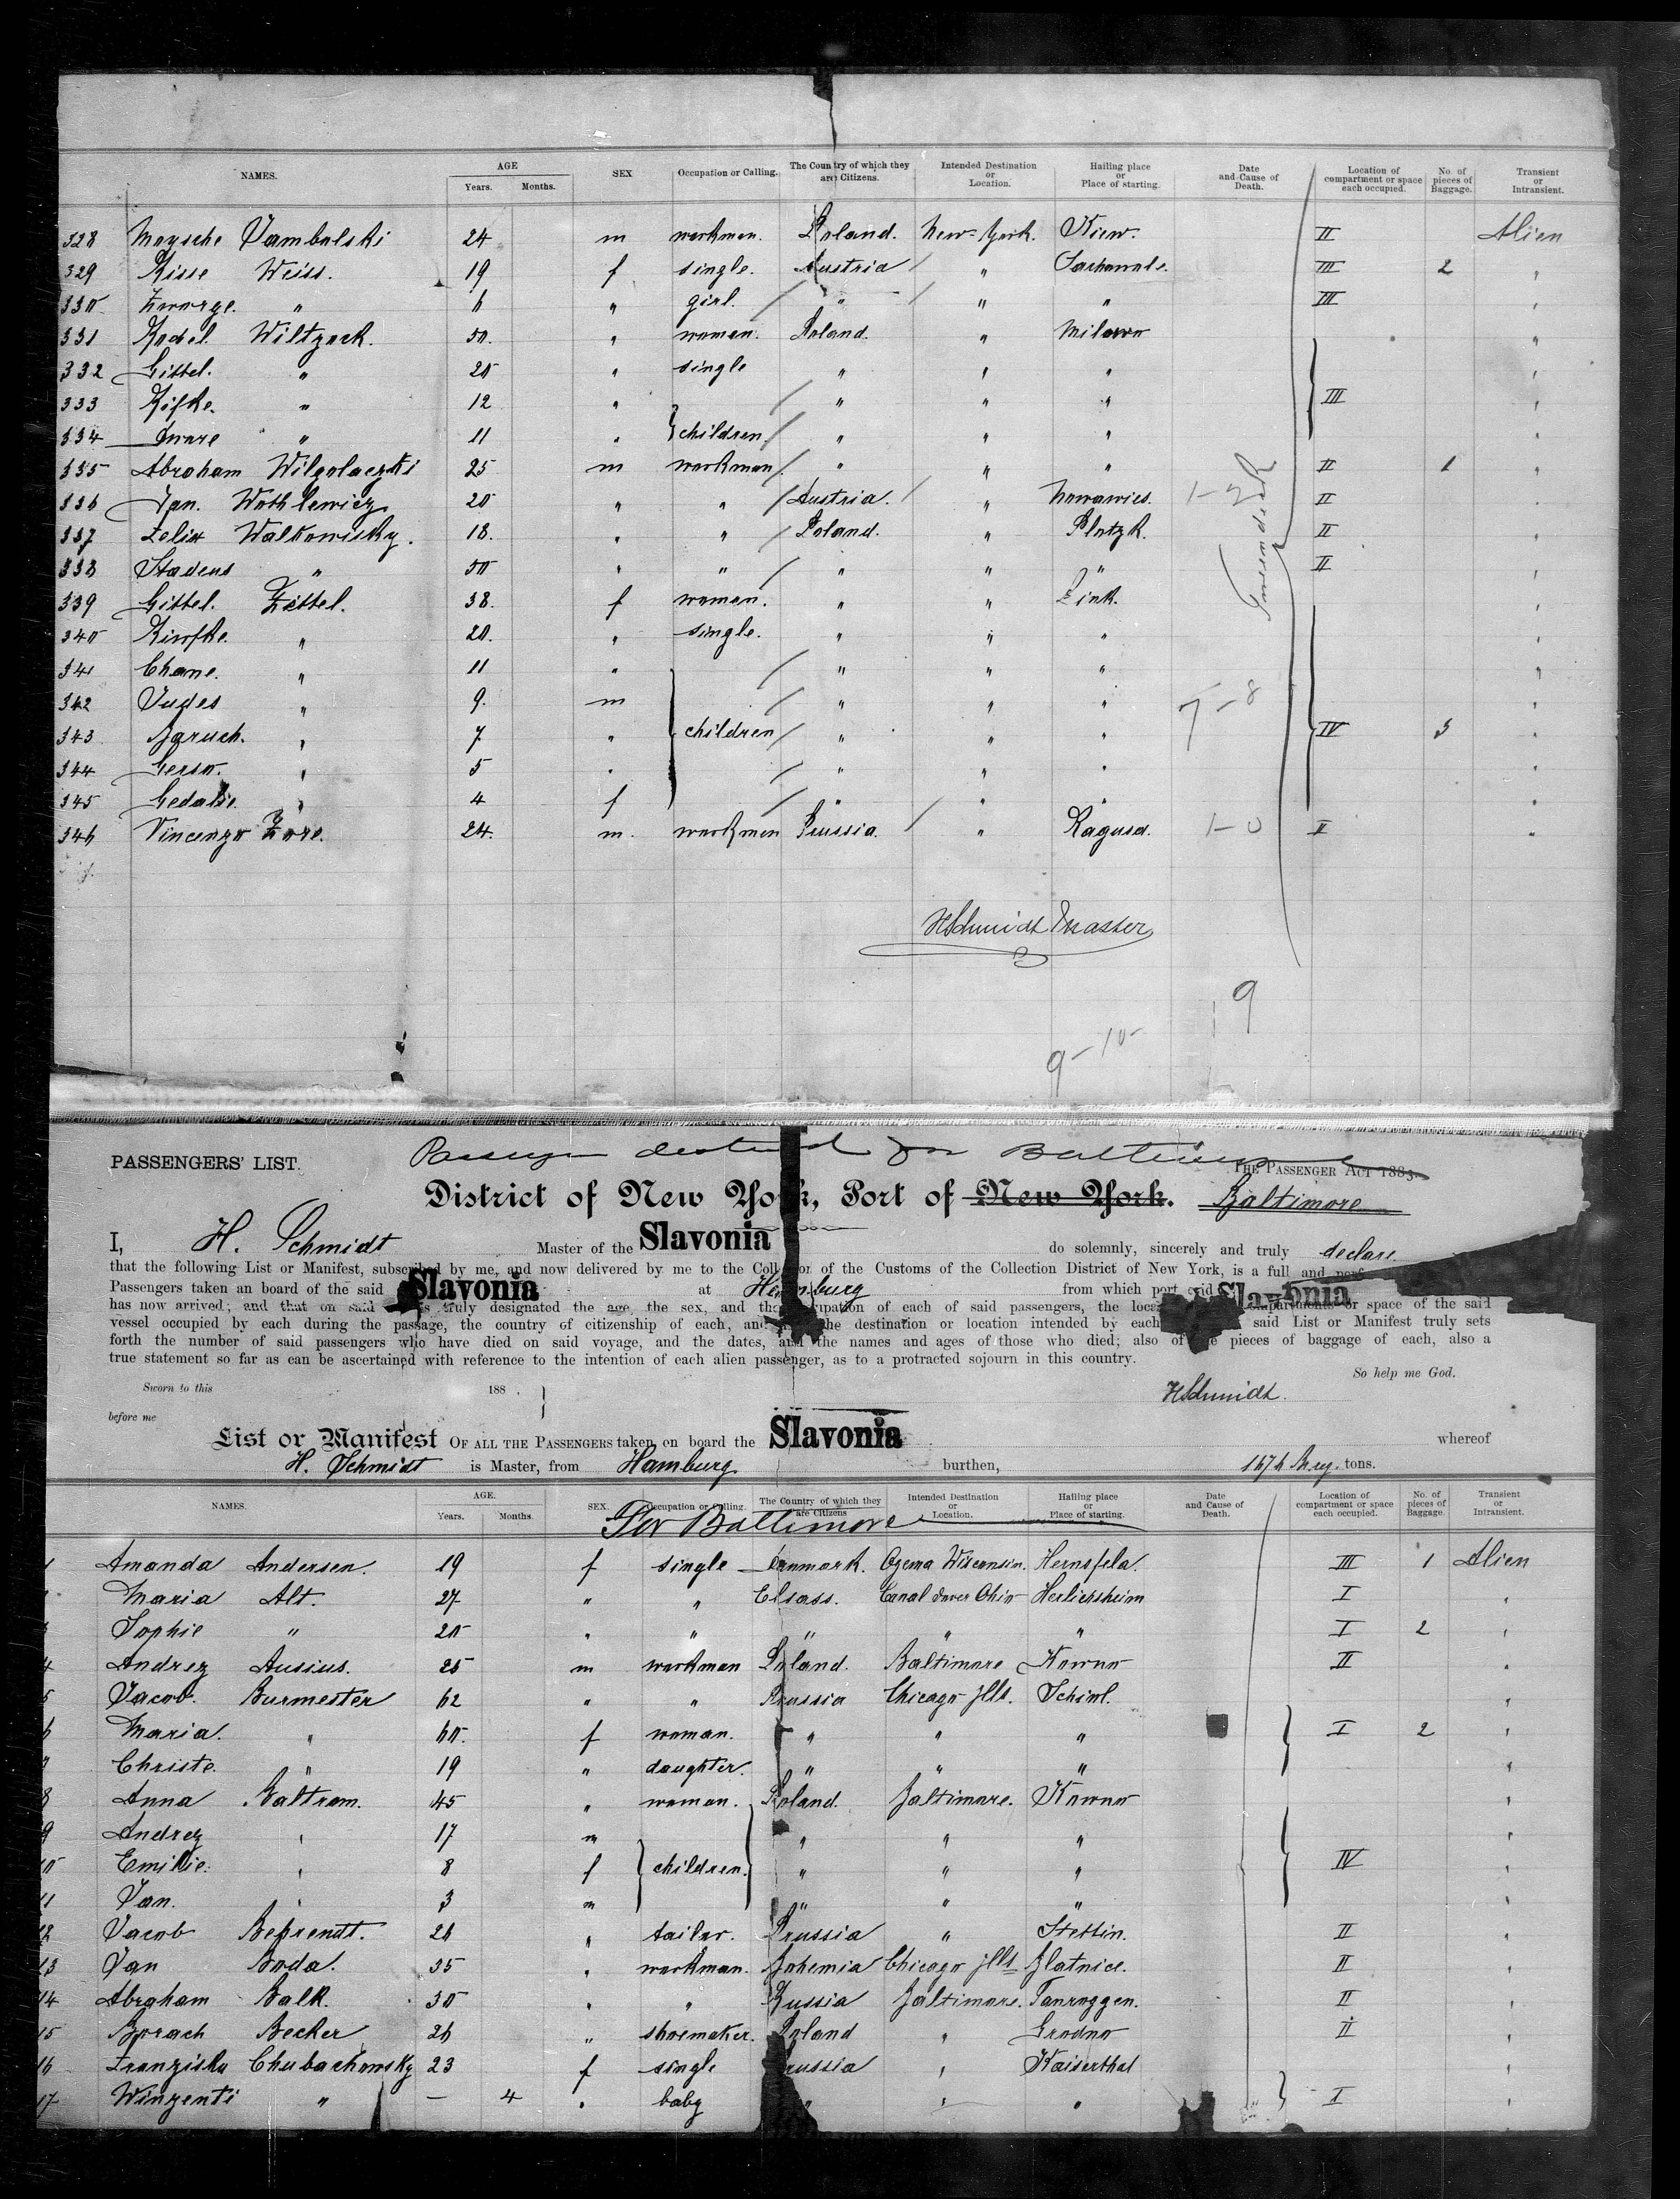 NAMES. AGE Years. Months. SEX Occupation or Calling. The Country of which they are Citizens. Intended Destination or Location. Hailing place or Place of starting. Date and Cause of Death. Location of compartment or space each occupied. No. of pieces of Baggage. Transient or Intransient.
328 Moysche Jambalski 24 m workman. Poland. New-York. Kiew. II Alien
329 Risse Weiss. 19 f single. Austria / " III 2 "
330 " 6 " girl. / " / " " III
331 Wiltzock. 50. " woman. Poland. " Milowo "
332 Gittel. " 20 " single " " " "
333 Rifke. " 12 " / " " " III "
334 " 11 " children / " " " "
335 Abraham 25 m workman / " " " II 1 "
336 Jan. 20 " " / Austria. / " Nowawies. 1- II "
337 Felix Walkowisky. 18. " " / Poland. " Plotzk. II "
338 Stadeus " 50 " " / " " " II "
339 Gittel. Zittel. 38. f woman. " " "
340 " 20. " single. " " " "
341 Chane. " 11 " / " " " "
342 Judes " 9. m / " " " 7-8 "
343 Baruch. " 7 " children / " " " IV "
344 " 5 " / " " " "
345 " 4 f / " " " "
346 Vincenzo 24. m. workman Prussia. / " Ragusa. 1-0 I "
HSchmidt Master
9
9-10
Passenger destined for Baltimore
PASSENGERS' LIST. THE PASSENGER ACT 188
District of New York, Port of New York. Baltimore
I, H. Schmidt Master of the Slavonia do solemnly, sincerely and truly declare
that the following List or Manifest, subscribed by me, and now delivered by me to the Collector of the Customs of the Collection District of New York, is a full and
Passengers taken an board of the said Slavonia at Hamburg from which port said Slavonia
has now arrived; and that on said is truly designated the age, the sex, and the occupation of each of said passengers, the compartment or space of the said
vessel occupied by each during the passage, the country of citizenship of each, and the destination or location intended by each said List or Manifest truly sets
forth the number of said passengers who have died on said voyage, and the dates, and the names and ages of those who died; also of the pieces of baggage of each, also a
true statement so far as can be ascertained with reference to the intention of each alien passenger, as to a protracted sojourn in this country.
So help me God.
Sworn to this 188 .
HSchmidt.
before me
List or Manifest OF ALL THE PASSENGERS taken on board the Slavonia whereof
H. Schmidt is Master, from Hamburg burthen, tons.
NAMES. AGE. Years. Months. SEX. Occupation or Calling. The Country of which they are Citizens Intended Destination or Location. Hailing place or Place of starting. Date and Cause of Death. Location of compartment or space each occupied. No. of pieces of Baggage. Transient or Intransient.
For Baltimore
1 Amanda Andersen. 19 f single Denmark. Ogema Wisconsin. III 1 Alien
Maria Alt. 27 " " Elsass. Canal dover Ohio Herlichsheim I "
Sophie " 20 " " " " " I 2 "
4 Andrez Ausius. 25 m workman Poland. Baltimore Kowno II "
5 Jacob. Burmester 62 " " Prussia Chicago Ills. "
6 Maria. " 60. f woman. " " " I 2 "
7 Christe. " 19 " daughter. " " " "
8 Anna Baltram. 45 " woman. Poland. Baltimore. Kowno "
9 Andrez " 17 m " " " "
10 Emilie. " 8 f children. " " " IV "
11 Jan. " 3 m " " " "
12 Jacob Behrendt. 26 " tailor. Prussia " Stettin. II "
13 Jan Boda. 35 " workman. Bohemia Chicago Ills Zlatnice. II "
14 Abraham Balk. 30 " " Russia Baltimore. Tauroggen. II "
15 Borach Becker 26 " shoemaker. Poland " Grodno II "
16 Franziska Chubachowsky 23 f single Prussia " Kaiserthal "
17 Winzenti " — 4 " baby " " " I "